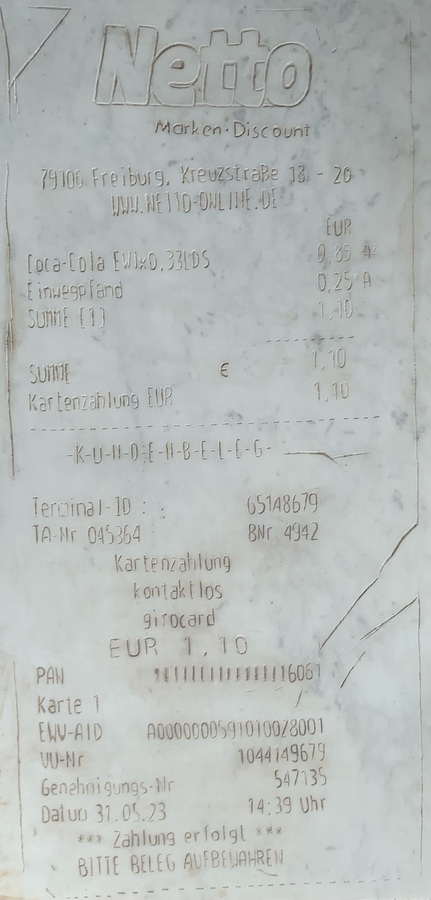 Netto
Marken-Discount
79106 Freiburg, Kreuzstraße 18 - 20
WWW.NETTO-ONLINE.DE
EUR
Coca-Cola EW1x0,33LDS 0,85 A
Einwegpfand 0,25 A
SUMME [1] 1,10
SUMME € 1,10
Kartenzahlung EUR 1,10
-K-U-N-D-E-N-B-E-L-E-G-
Terminal-ID : 65148679
TA-Nr 045364 BNr 4942
Kartenzahlung
kontaktlos
girocard
EUR 1,10
PAN 16061
Karte 1
EMV-AID A0000000591010028001
VU-Nr 1044149679
Genehmigungs-Nr 547135
Datum 31.05.23 14:39 Uhr
*** Zahlung erfolgt ***
BITTE BELEG AUFBEWAHREN